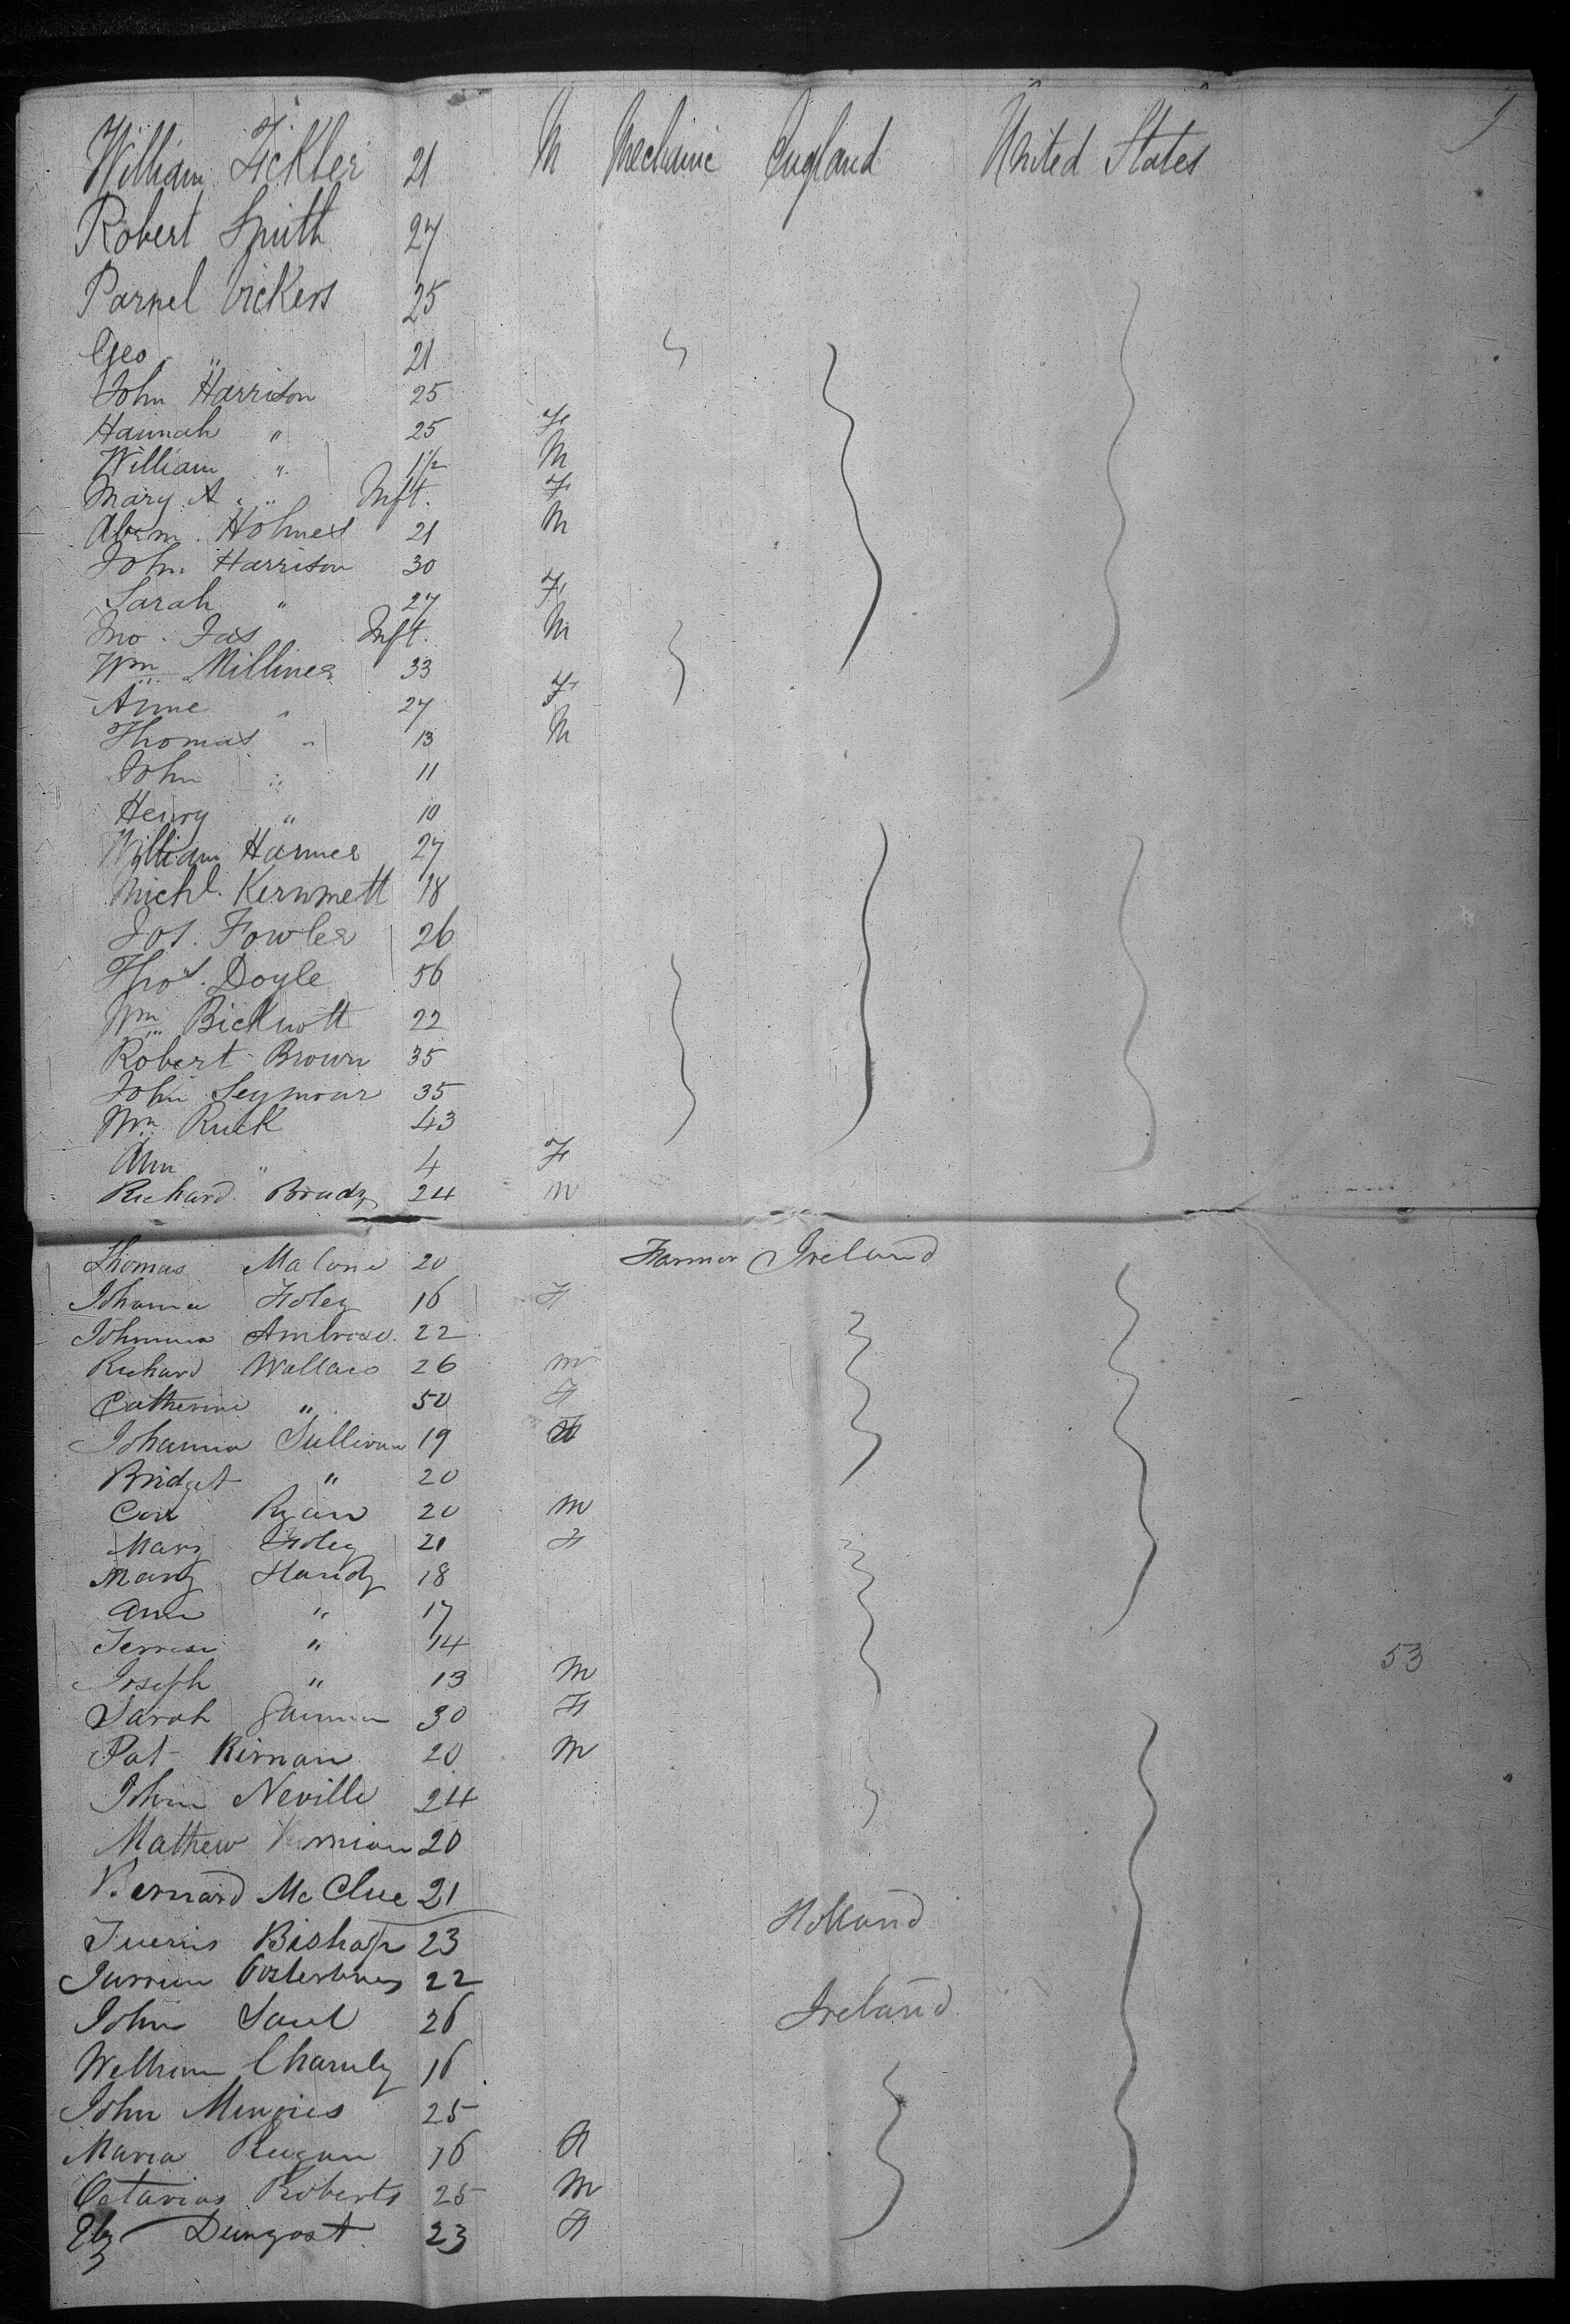 William Tickler 21 M Mechanic England United States
Robert Smith 27
Parnel Vickers 25
Geo " 21
John Harrison 25
Hannah " 25 F
William " 1 1/2 M
Mary A " Inft. F
Abrm. Holmes 21 M
John Harrison 30
Sarah " 27 F
Jno. Jas Inft. M
Wm Milliner 33
Anne " 27 F
Thomas " 13 M
John " 11
Henry " 10
William Harmer 27
Michl. 18
Jos. Fowler 26
Thos. Doyle 56
Wm Bicknott 22
Robert Brown 35
John Seymour 35
Wm Ruck 43
Ann " 4 F
Richard Brady 24 M
Thomas Malone 20 Farmer Ireland
Johanna Foley 16 F
Johanna Ambrose 22
Richard Wallace 26 M
Catherine " 50 F
Johanna Sullivan 19 F
Bridget " 20
Con Ryan 20 M
Mary Foley 21 F
Mary Handy 18
Ann " 17
" 14
Joseph " 13 M 53
Sarah 30 F
Pat Kirnan 20 M
John Neville 24
Mathew 20
Bernard McClue 21
Bishop 23 Holland
22
John Saul 26 Ireland
William Charnly 16
John 25
Maria Regan 16 F
Octavius Roberts 25 M
Elz 23 F